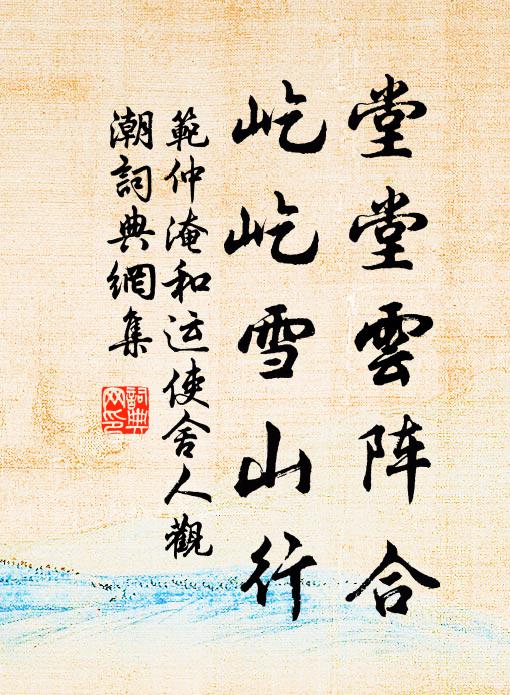 堂堂雲阵合
屹屹雪山行
範仲淹和运使舍人觀
潮詞典網集
詞典
网印